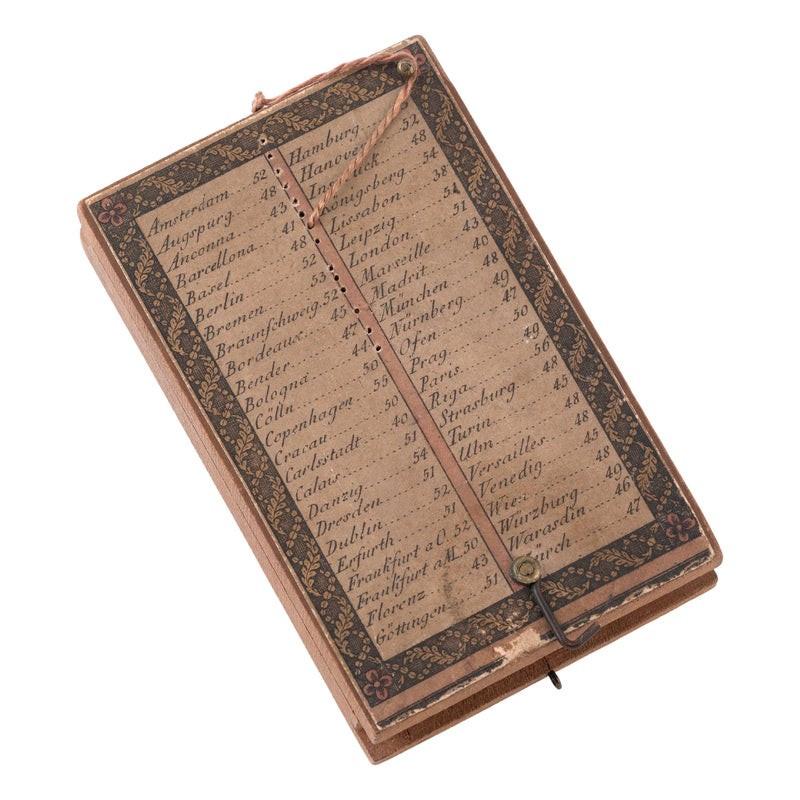 Amsterdam 52
Augspurg 48
Anconna 43
Barcellona 41
Basel 48
Berlin 52
Bremen 53
Braunſchweig 52
Bordeaux 45
Bender 47
Bologna 44
Cölln 50
Copenhagen 55
Cracau 50
Carlsstadt 40
Calais 51
Danzig 54
Dresden 51
Dublin 52
Erfurth 51
Frankfurt a O. 52
Frankfurt a M. 50
Florenz 43
Göttingen 51
Hamburg
Hanover 52
48
Königsberg 54
Lissabon 38
Leipzig 51
London 51
Marseille 43
Madrit 40
München 48
Nürnberg 49
Ofen 47
Prag 50
Paris 49
Riga 56
Strasburg 48
Turin 45
Ulm 48
Versailles 48
Venedig 45
Wien 48
Würzburg 49
Warasdin 46
47